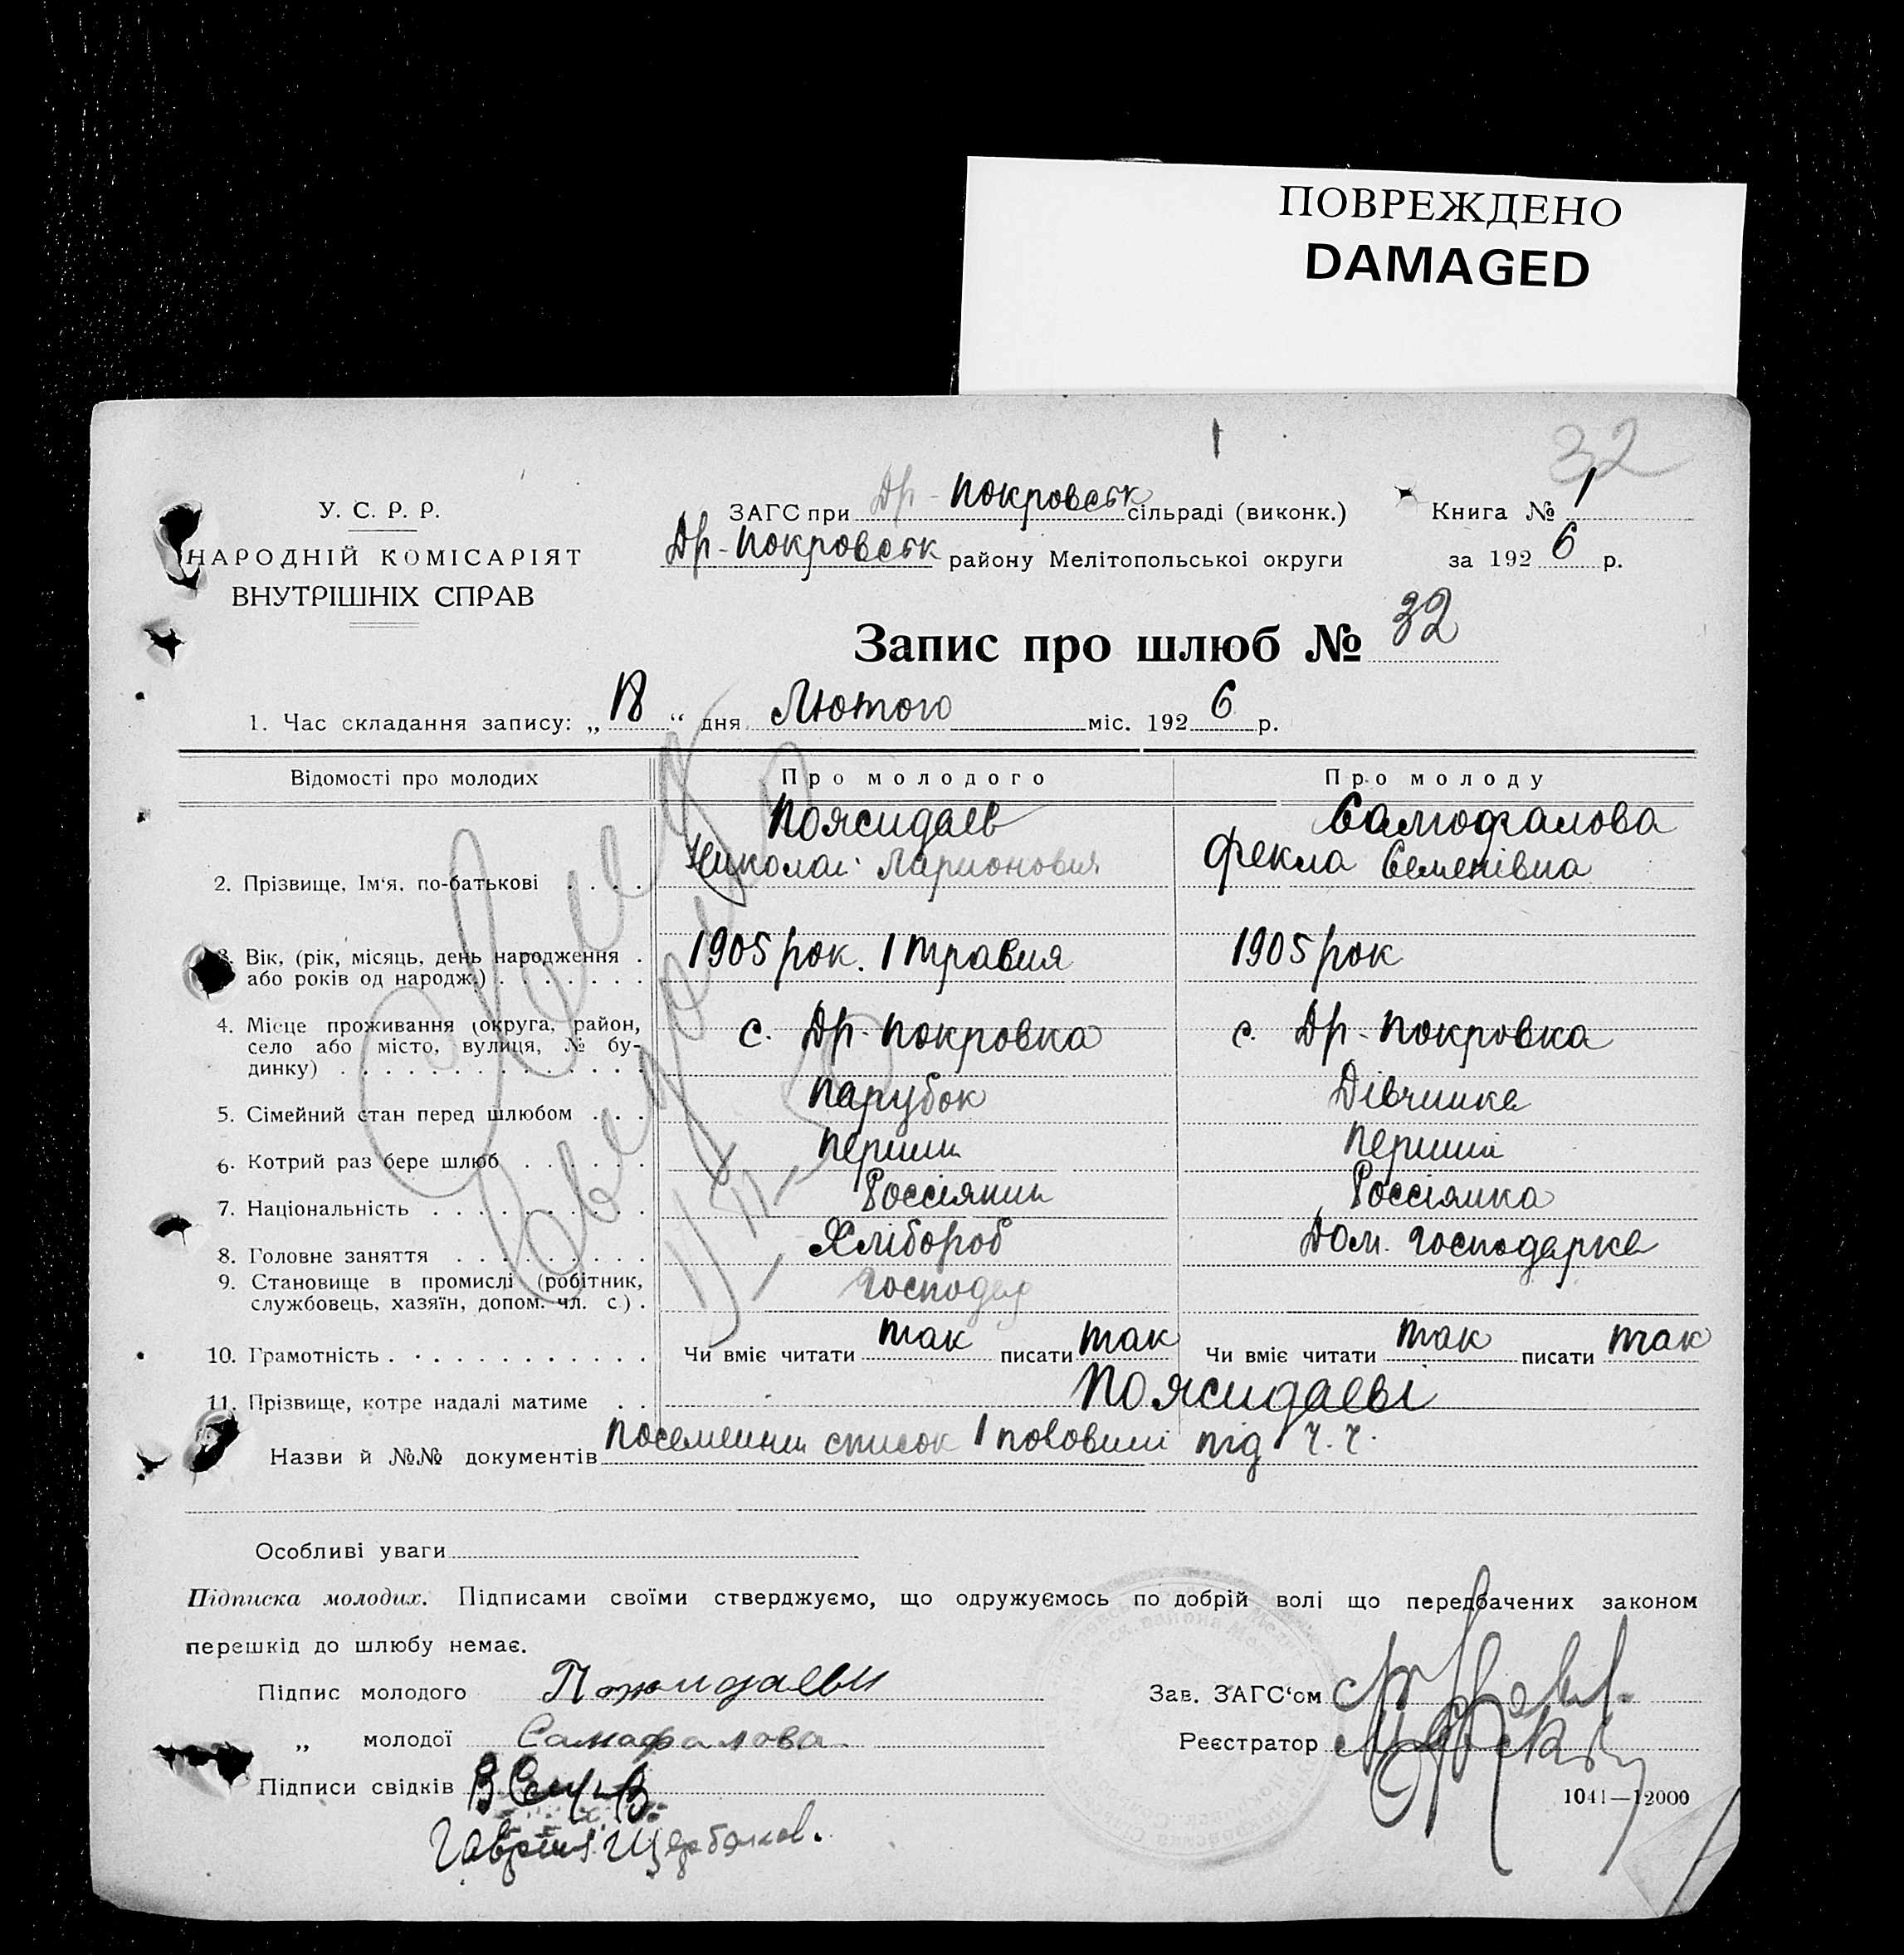 ПОВРЕЖДЕНО
DAMAGED
32
У. С. Р. Р.
НАРОДНІЙ КОМІСАРІЯТ
ВНУТРІШНІХ СПРАВ
ЗАГС при Др-Покровськ сільраді (виконк.)
Др-Покровськ району Мелітопольскоі округи
Книга № 1
за 1926 р.
Запис про шлюб № 32
1. Час складання запису: „18“ дня Лютого міс. 1926 р.
Відомості про молодих Про молодого Про молоду
Пожидаев Самофалова
2. Прізвище, Ім'я, по-батькові . . . . Николай Ларионович Фекла Семенівна
3. Вік, (рік, місяць, день народження . 1905 рок. 1 травня 1905 рок
або років од народж.) . . . . . . .
4. Місце проживання (округа, район, с. Др-Покровка с. Др-Покровка
село або місто, вулиця, № бу-
динку) . . . . . . . . . . . . . .
5. Сімейний стан перед шлюбом . . . Парубок Дівчинка
6. Котрий раз бере шлюб . . . . . . Перший Перший
7. Національність . . . . . . . . . . Россіянин Россіянка
8. Головне заняття . . . . . . . . . Хлібороб Дом. господарка
9. Становище в промислі (робітник, Господар
службовець, хазяїн, допом. чл. с.) .
10. Грамотність . . . . . . . . . . . . Чи вміє читати так писати так Чи вміє читати так писати так
11. Прізвище, котре надалі матиме . . Пожидаеві
Назви й №№ документів Посемейний список 1 половини під ч. ч.
Особливі уваги
Підписка молодих. Підписами своїми стверджуємо, що одружуємось по добрій волі що передбачених законом
перешкід до шлюбу немає.
Підпис молодого Пожидаевы
„ молодої Самафалова
Підписи свідків
Гавріил Щербаков.
Зав. ЗАГС'ом
Реєстратор
1041—12000